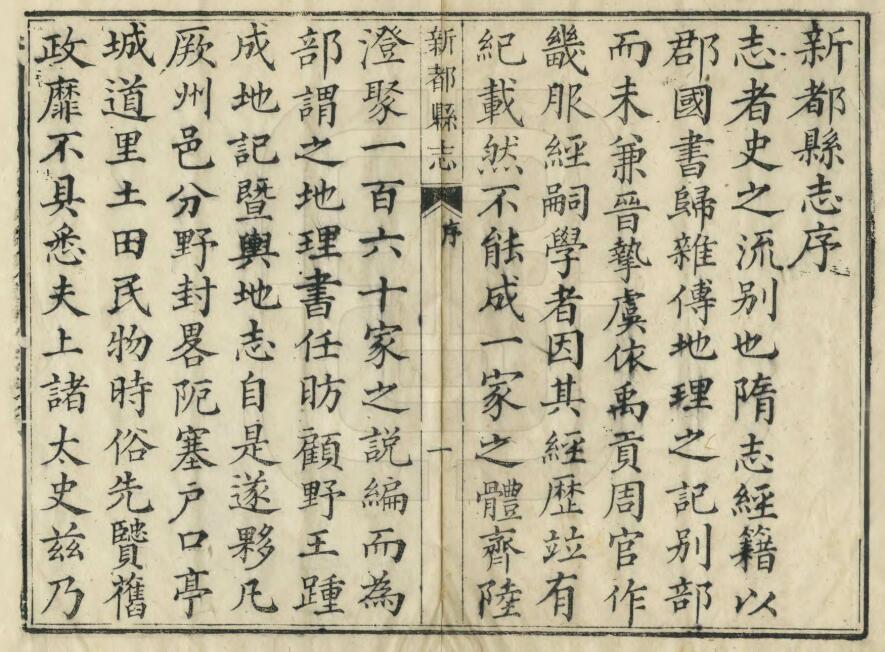 新都縣志序
志者史之流别也隋志經籍以
郡國書歸雜傳地理之記别部
而未兼晉摯虞依禹貢周官作
畿服經嗣學者因其經歴竝有
紀載然不能成一家之體齊陸
新都縣志
序
一
澄聚一百六十家之説編而為
部謂之地理書任昉顧野王踵
成地記曁輿地志自是遂夥凡
厥州邑分野封畧阨塞户口亭
城道里土田民物時俗先贒舊
政靡不具悉夫上諸太史兹乃